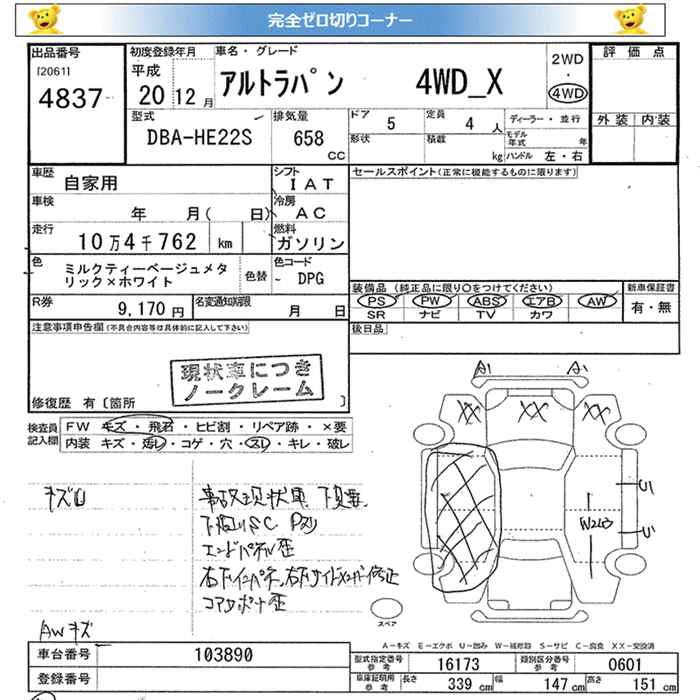 完全ゼロ切りコーナー
出品番号 [2061] 4837
初度登録年月 平成 20 12月
車名・グレード アルトラパン 4WD_X
2WD・4WD
評価点
外装 内装
型式 DBA-HE22S
排気量 658 CC
ドア 5
定員 4 人
形状
積載 kg
ディーラー・並行
モデル年式 年
ハンドル 左・右
車歴 自家用
シフト IAT
車検 年 月( 日)
冷房 AC
走行 10万4千762 km
燃料 ガソリン
色 ミルクティーベージュメタリック×ホワイト
色替
色コード DPG
R券 9,170円
名変通知期限 月 日
セールスポイント(正常に機能するものに限ります)
装備品 (純正品に限り○をつけてください)
PS PW ABS エアB AW
SR ナビ TV カワ
新車保証書 有・無
後日品
注意事項申告欄(不具合内容等は具体的に記入して下さい)
現状車につき
ノークレーム
修復歴 有〔箇所 〕
検査員記入欄
FW キズ・飛石・ヒビ割・リペア跡・×要
内装 キズ・汚し・コゲ・穴・スレ・キレ・破レ
キズ
下回りSC
エンドパネル歪
コアサポート歪
AWキズ
A1 A1
XX XX XX
W2
U U
スペア
A-キズ E-エクボ U-凹み W-補修跡 S-サビ C-腐食 XX-交換済
車台番号 103890
登録番号
型式指定番号 参考 16173
類別区分番号 参考 0601
車庫証明用 参考 長さ 339 cm 幅 147 cm 高さ 151 cm